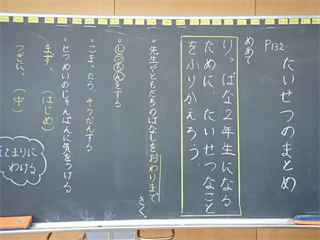 P132
たいせつのまとめ
めあて
りっぱな2年生になる
ために、たいせつなこと
をふりかえろう
・先生やともだちのはなしをおわりまで
きく。
・しつもんをする
・こまったら、そうだんする
・せつめいのじゅんばんに気をつける
まず、(はじめ)
つぎに、(中)
まとまりに
わける